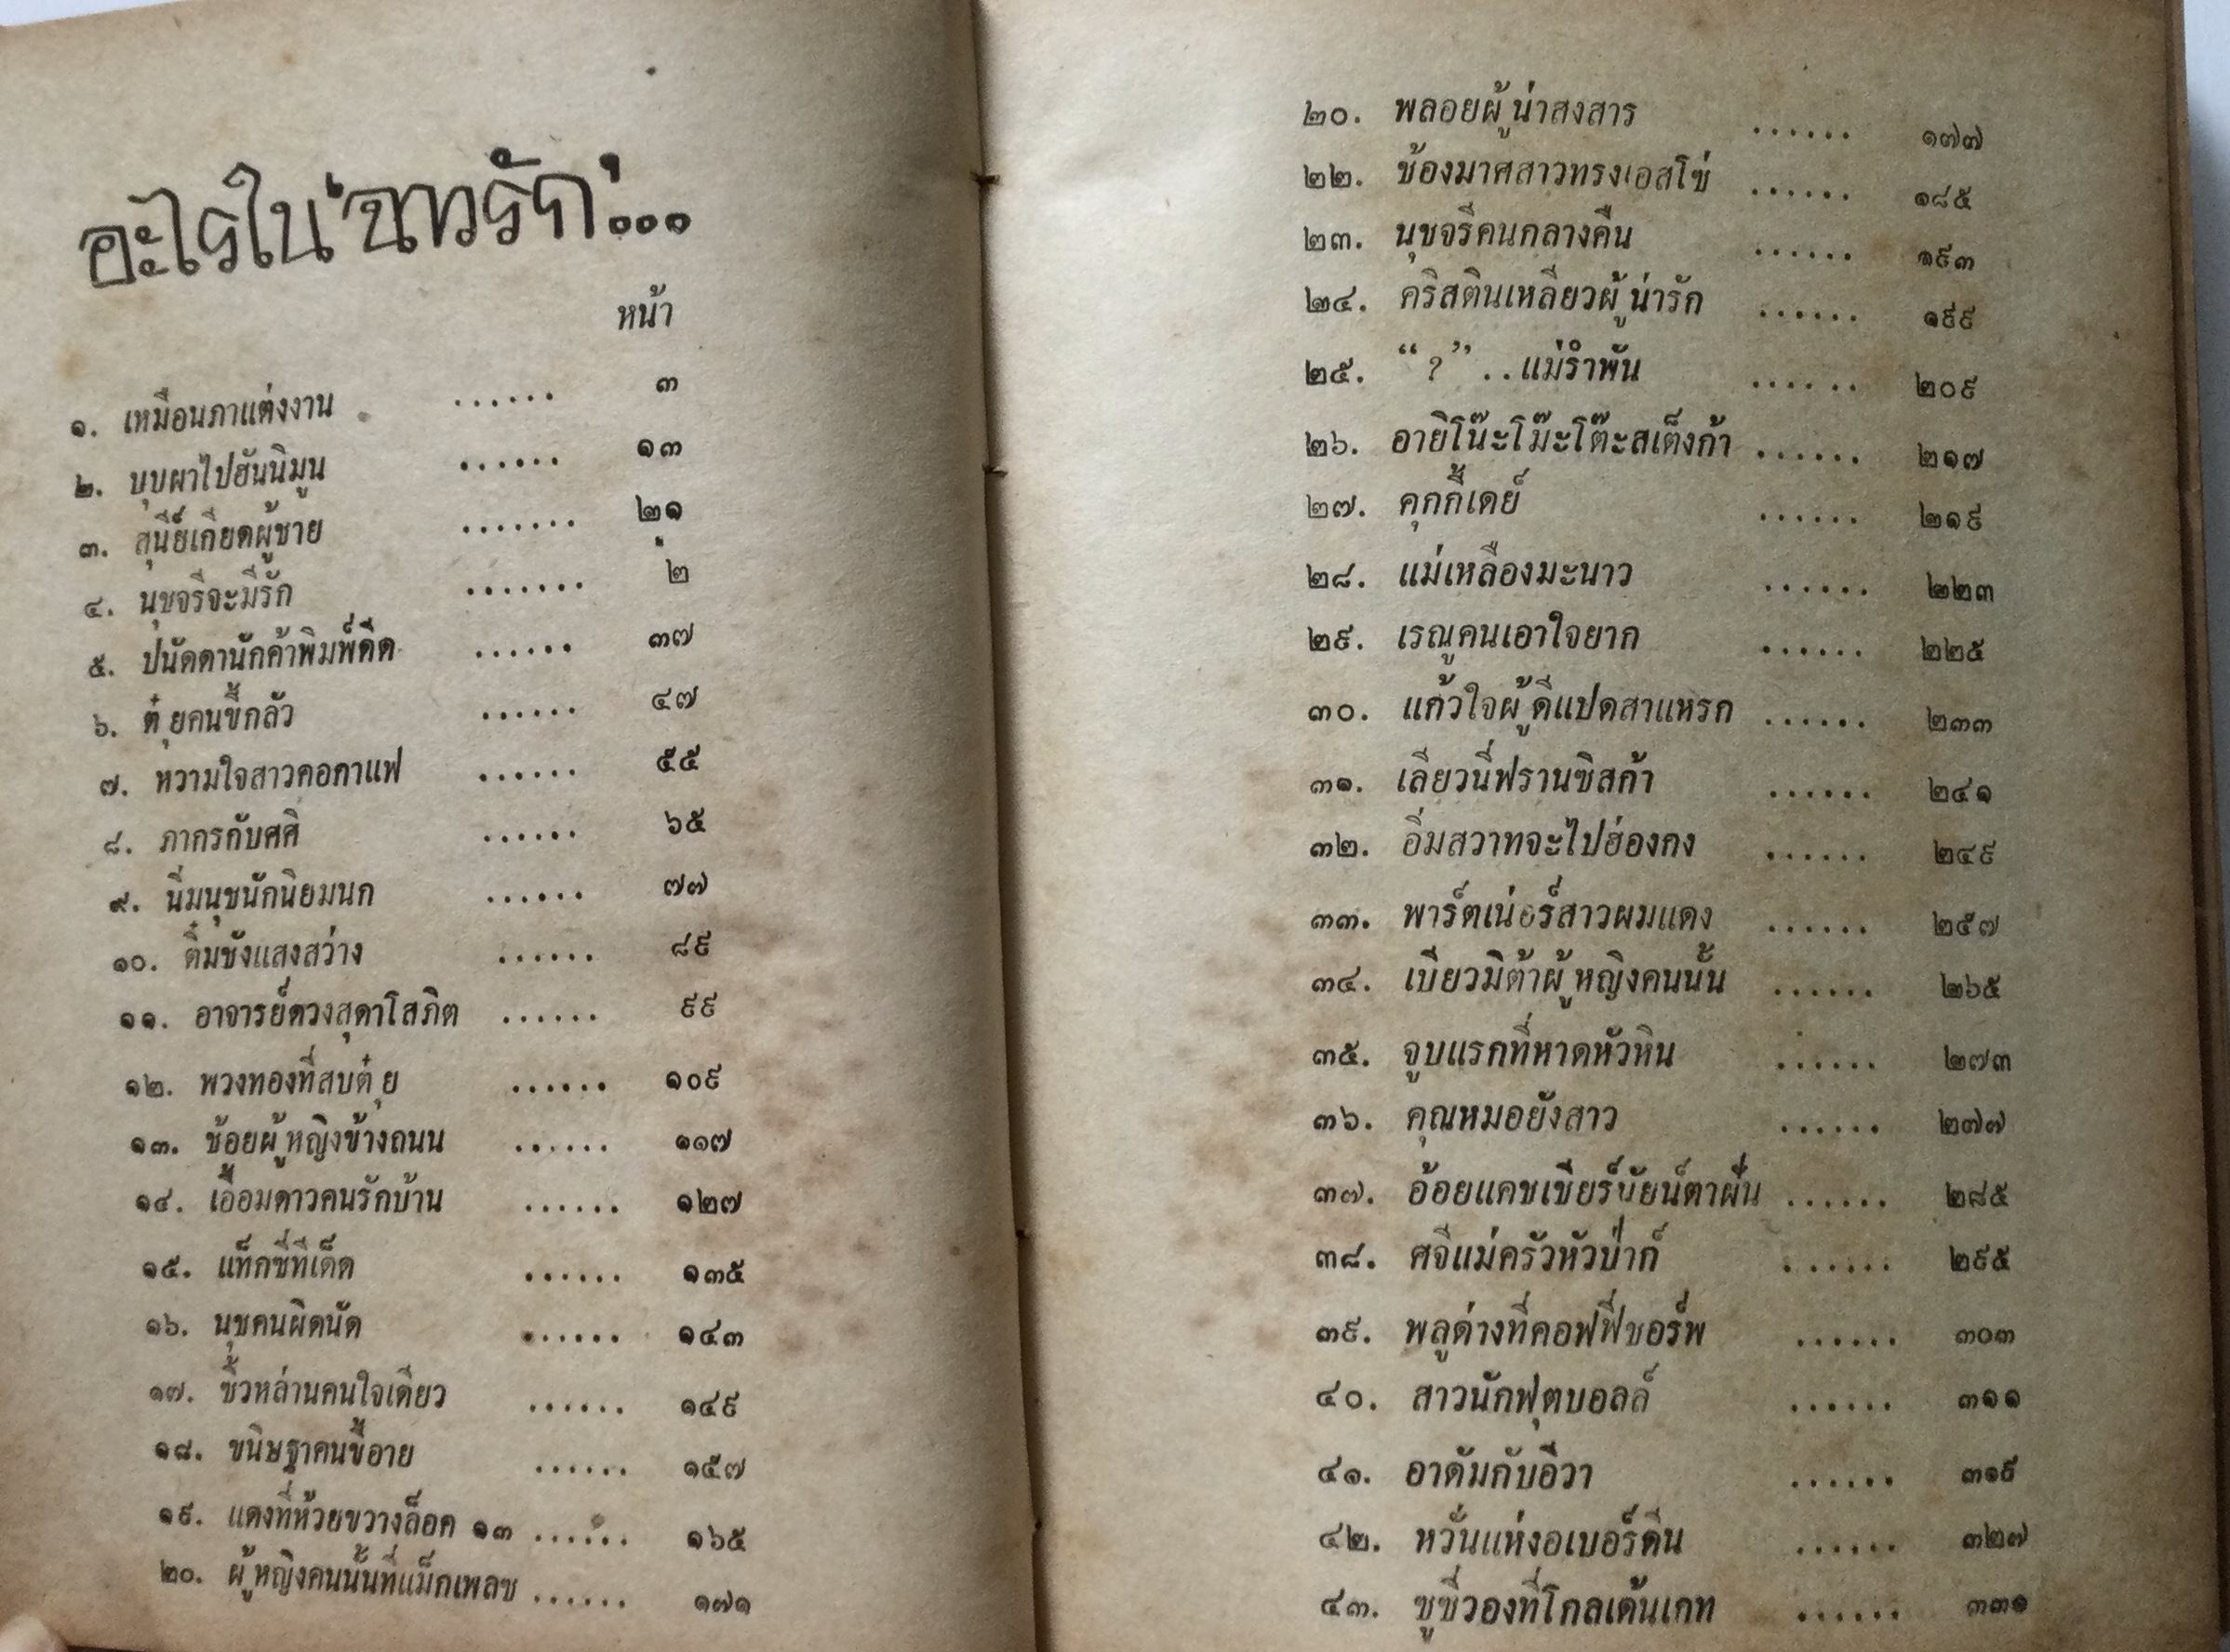 อะไรใน "ฉาวรัก"...
หน้า
๑. เหมือนภาแต่งงาน ...... ๓
๒. บุบผาไปฮันนิมูน ...... ๑๓
๓. สุนีย์เกียดผู้ชาย ....... ๒๑
๔. นุชจรีจะมีรัก ....... ๒
๕. ปนัดดานักค้าพิมพ์ดีด ...... ๓๗
๖. ตุ๋ยคนขี้กลัว ...... ๔๗
๗. หวามใจสาวคอกาแฟ ...... ๕๕
๘. ภากรกับศศิ ...... ๖๕
๙. นิ่มนุชนักนิยมนก ...... ๗๗
๑๐. ติ๋มชังแสงสว่าง ...... ๘๙
๑๑. อาจารย์ดวงสุดาโสภิต ...... ๙๙
๑๒. พวงทองที่สบตุ๋ย ...... ๑๐๙
๑๓. ช้อยผู้หญิงข้างถนน ...... ๑๑๗
๑๔. เอื้อมดาวคนรักบ้าน ...... ๑๒๗
๑๕. แท็กซี่ทีเด็ด ...... ๑๓๕
๑๖. นุชคนผิดนัด ...... ๑๔๓
๑๗. ซิ้วหล่านคนใจเดียว ...... ๑๔๙
๑๘. ขนิษฐาคนขี้อาย ...... ๑๕๗
๑๙. แดงที่ห้วยขวางล็อค ๑๓ ...... ๑๖๕
๒๐. ผู้หญิงคนนั้นที่แม็กเพลซ ...... ๑๗๑
๒๐. พลอยผู้น่าสงสาร ...... ๑๗๗
๒๒. ช้องมาศสาวทรงเอสโซ่ ...... ๑๘๕
๒๓. นุชจรีคนกลางคืน ...... ๑๙๓
๒๔. คริสตินเหลียวผู้น่ารัก ...... ๑๙๙
๒๕. “?” ..แม่รำพัน ...... ๒๐๙
๒๖. อายิโน๊ะโม๊ะโต๊ะสเต็งก้า ...... ๒๑๗
๒๗. คุกกี้เดย์ ...... ๒๑๙
๒๘. แม่เหลืองมะนาว ...... ๒๒๓
๒๙. เรณูคนเอาใจยาก ...... ๒๒๕
๓๐. แก้วใจผู้ดีแปดสาแหรก ...... ๒๓๓
๓๑. เลียวนี่ฟรานซิสก้า ...... ๒๔๑
๓๒. อิ่มสวาทจะไปฮ่องกง ...... ๒๔๙
๓๓. พาร์ตเน่อร์สาวผมแดง ...... ๒๕๗
๓๔. เบียวมิต้าผู้หญิงคนนั้น ...... ๒๖๕
๓๕. จูบแรกที่หาดหัวหิน ...... ๒๗๓
๓๖. คุณหมอยังสาว ...... ๒๗๗
๓๗. อ้อยแคชเชียร์นัยน์ตาฝัน ...... ๒๘๕
๓๘. ศจีแม่ครัวหัวป่าก์ ...... ๒๙๕
๓๙. พลูด่างที่คอฟฟี่ชอร์พ ...... ๓๐๓
๔๐. สาวนักฟุตบอลล์ ...... ๓๑๑
๔๑. อาดัมกับอีวา ...... ๓๑๙
๔๒. หวั่นแห่งอเบอร์ดีน ...... ๓๒๗
๔๓. ซูซี่วองที่โกลเด้นเกท ...... ๓๓๑